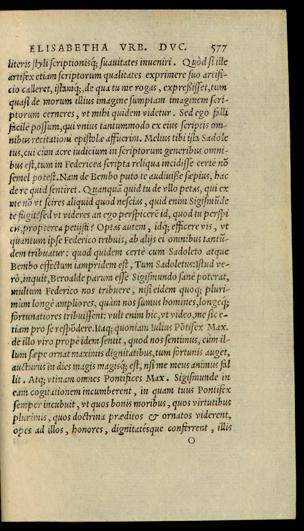 ELISABETHA VRB. DVC. 577
literis styli scriptionisq; suauitates inueniri. Quòd si ille
artifex etiam scriptorum qualitates exprimere suo artifi-
cio calleret, istamq;, de qua tu me rogas, expreßisset, tum
quasi de morum illius imagine sumptam imaginem scri-
ptorum cerneres, vt mihi quidem videtur. Sed ego falli
facilè possum, qui vnius tantummodo ex eius scriptis om-
nibus recitationi epistolæ affuerim. Melius tibi ista Sadole
tus, cui cùm acre iudicium in scriptorum generibus omni-
bus est, tum in Federicea scripta reliqua incidisse certè nō
semel potest. Nam de Bembo puto te audiuisse sæpius, hac
de re quid sentiret. Quanquā quid tu de vllo petas, qui ex
me nō vt scires aliquid quod nescias, quid enim Sigismūde
te fugit? sed vt videres an ego perspicerē id, quod tu perspi
cis, propterea petijsti? Optas autem, idq; efficere vis, vt
quantum ipse Federico tribuis, ab alijs ei omnibus tantū-
dem tribuatur: quod quidem certè cum Sadoleto atque
Bembo effectum iampridem est, Tum Sadoletus: Istud ve-
rò, inquit, Beroalde parum esse Sigismundo sanè poterat,
multum Federico nos tribuere, nisi eidem quoq; pluri-
mùm longè ampliores, quàm nos sumus homines, longeq;
fortunatores tribuissent: vult enim hic, vt video, me sic e-
tiam pro se respōdere. Itaq; quoniam Iulius Pōtifex Max.
de illo viro propè idem sentit, quod nos sentinus, cùm il-
lum sæpe ornat maximis dignitatibus, tum fortunis auget,
aucturus in dies magis magisq; est, nisi me meus animus fal
lit. Atq; vtinam omnes Pontifices Max. Sigismunde in
eam cogitationem incumberent, in quam tuus Pontifex
semper incubuit, vt quos bonis moribus, quos virtutibus
plurimis, quos doctrina præditos & ornatos viderent,
opes ad illos, honores, dignitatésque conferrent, illis
O